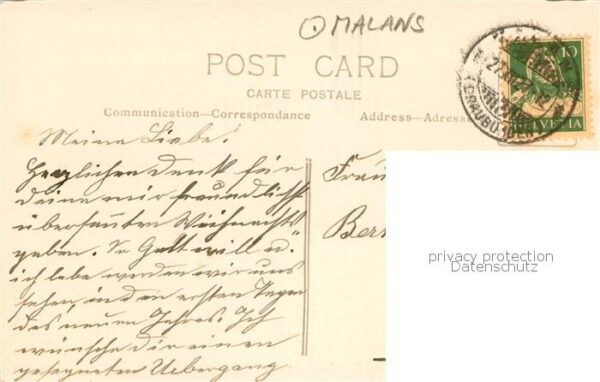 MALANS
POST CARD
CARTE POSTALE
Communication—Correspondance
Address—Adres
10
HELVETIA
Meine Liebe!
Herzlichen Dank für
deine mir freundlichst
übersandten Weihnachts
gaben. So Gott will u.
ich lebe werden wir uns
sehen, in den ersten Tagen
des neuen Jahres. Ich
wünsche dir einen
gesegneten Uebergang
Frau
Ber
privacy protection
Datenschutz